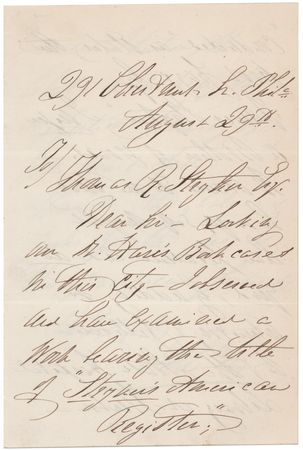 291 Chestnut St. Phila
August 29th.
To Thomas R. Stryker Esq.
Dear Sir - Looking
over Mr. Hart's Book cases
in this City - I observed
and have examined a
Work bearing the title
of "Stryker's American
Register",